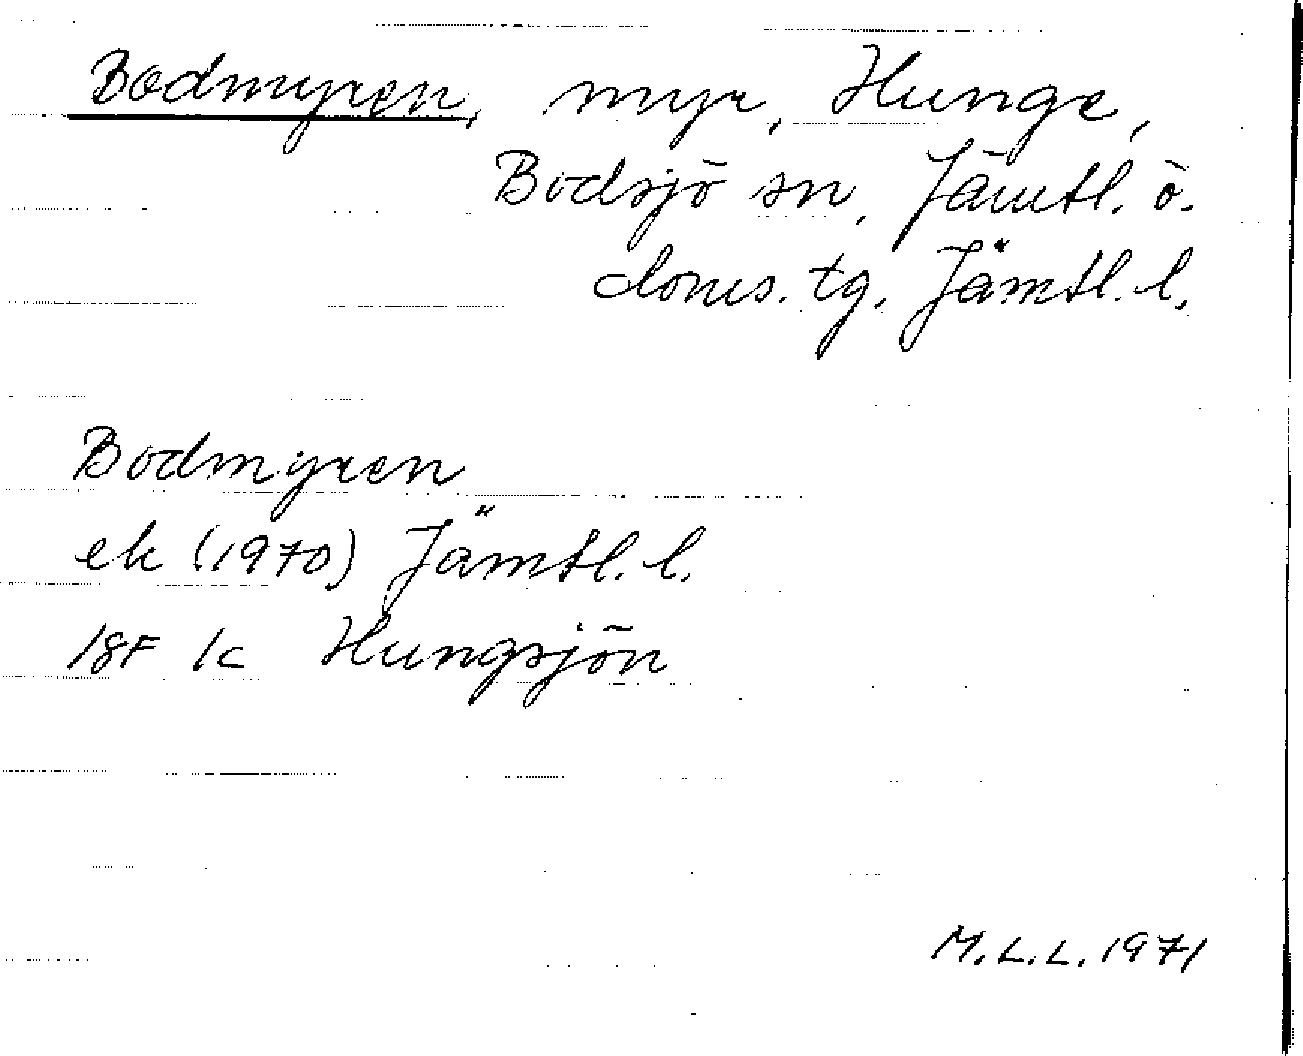 Bodmyren, myr, Hunge,
Bodsjö sn, Jämtl. ö.
doms. tg, Jämtl. l.
Bodmyren
ek (1970) Jämtl. l.
18F 1c Hungsjön
M.L.L. 1971